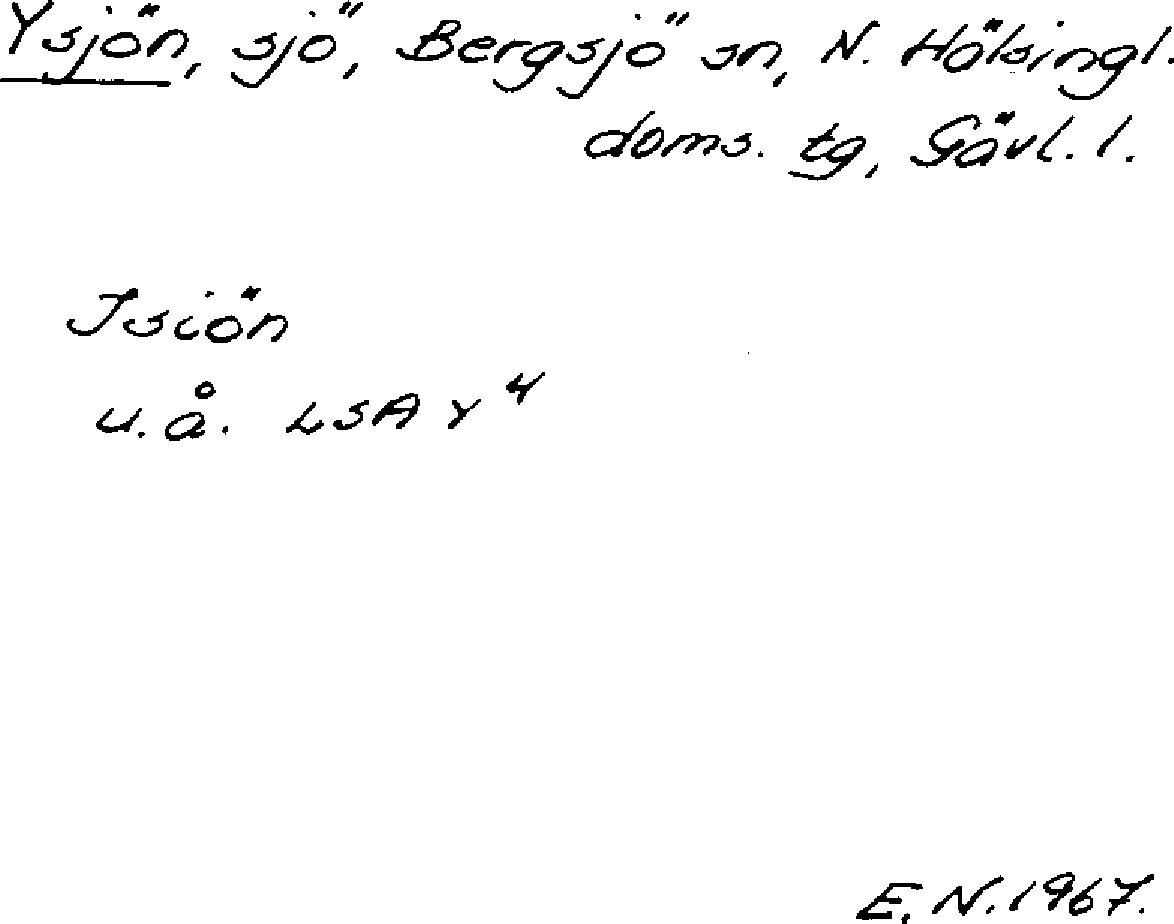 Ysjön, sjö, Bergsjö sn, N. Hälsingl.
doms. tg, Gävl. l.
Isiön
u.å. LSA Y⁴
E. N. 1967.